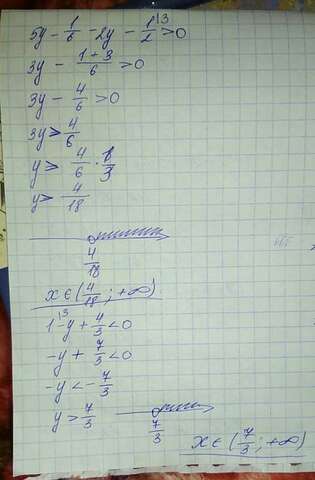 5y - 1/6 - 2y - 1/2 \3 > 0
3y - (1+3)/6 > 0
3y - 4/6 > 0
3y > 4/6
y > 4/6 · 1/3
y > 4/18
4/18
x ∈ (4/18; +∞)
1\3 - y + 4/3 < 0
-y + 7/3 < 0
-y < -7/3
y > 7/3
7/3
x ∈ (7/3; +∞)